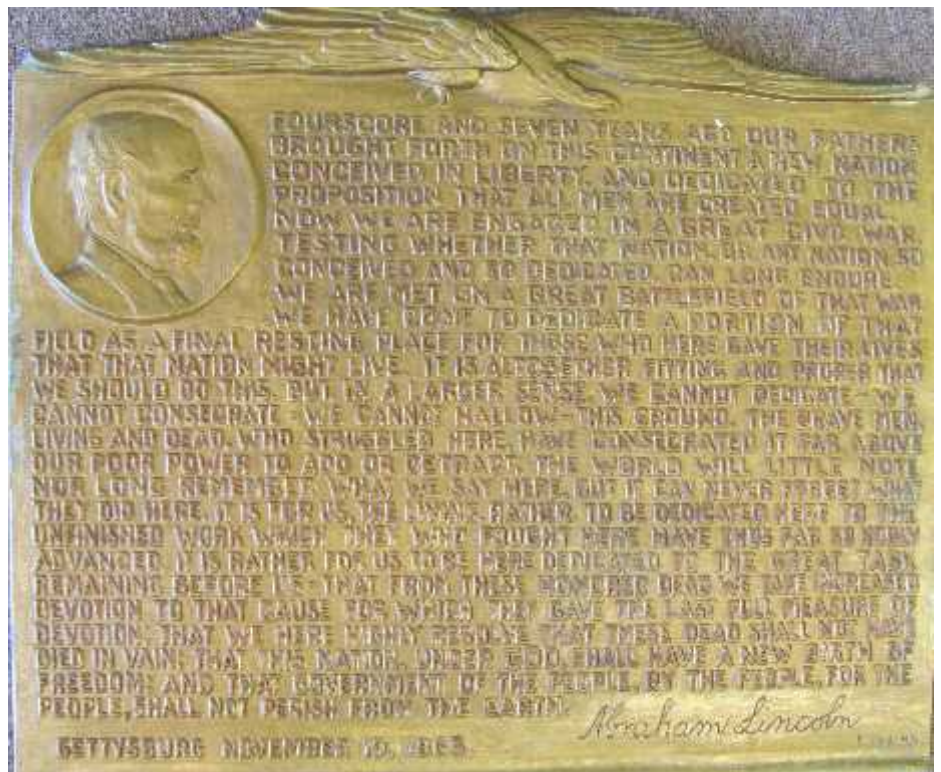 FOURSCORE AND SEVEN YEARS AGO OUR FATHERS
BROUGHT FORTH ON THIS CONTINENT A NEW NATION
CONCEIVED IN LIBERTY, AND DEDICATED TO THE
PROPOSITION THAT ALL MEN ARE CREATED EQUAL
NOW WE ARE ENGAGED IN A GREAT CIVIL WAR
TESTING WHETHER THAT NATION, OR ANY NATION SO
CONCEIVED AND SO DEDICATED, CAN LONG ENDURE
WE ARE MET ON A GREAT BATTLEFIELD OF THAT WAR
WE HAVE COME TO DEDICATE A PORTION OF THAT
FIELD AS A FINAL RESTING PLACE FOR THOSE WHO HERE GAVE THEIR LIVES
THAT THAT NATION MIGHT LIVE. IT IS ALTOGETHER FITTING AND PROPER THAT
WE SHOULD DO THIS. BUT IN A LARGER SENSE WE CANNOT DEDICATE-WE
CANNOT CONSECRATE-WE CANNOT HALLOW-THIS GROUND. THE BRAVE MEN,
LIVING AND DEAD, WHO STRUGGLED HERE, HAVE CONSECRATED IT FAR ABOVE
OUR POOR POWER TO ADD OR DETRACT. THE WORLD WILL LITTLE NOTE
NOR LONG REMEMBER WHAT WE SAY HERE, BUT IT CAN NEVER FORGET WHAT
THEY DID HERE. IT IS FOR US, THE LIVING, RATHER TO BE DEDICATED HERE TO THE
UNFINISHED WORK WHICH THEY WHO FOUGHT HERE HAVE THUS FAR SO NOBLY
ADVANCED. IT IS RATHER FOR US TO BE HERE DEDICATED TO THE GREAT TASK
REMAINING BEFORE US-THAT FROM THESE HONORED DEAD WE TAKE INCREASED
DEVOTION TO THAT CAUSE FOR WHICH THEY GAVE THE LAST FULL MEASURE OF
DEVOTION; THAT WE HERE HIGHLY RESOLVE THAT THESE DEAD SHALL NOT HAVE
DIED IN VAIN; THAT THIS NATION, UNDER GOD, SHALL HAVE A NEW BIRTH OF
FREEDOM; AND THAT GOVERNMENT OF THE PEOPLE, BY THE PEOPLE, FOR THE
PEOPLE, SHALL NOT PERISH FROM THE EARTH.
Abraham Lincoln
GETTYSBURG NOVEMBER 19, 1863